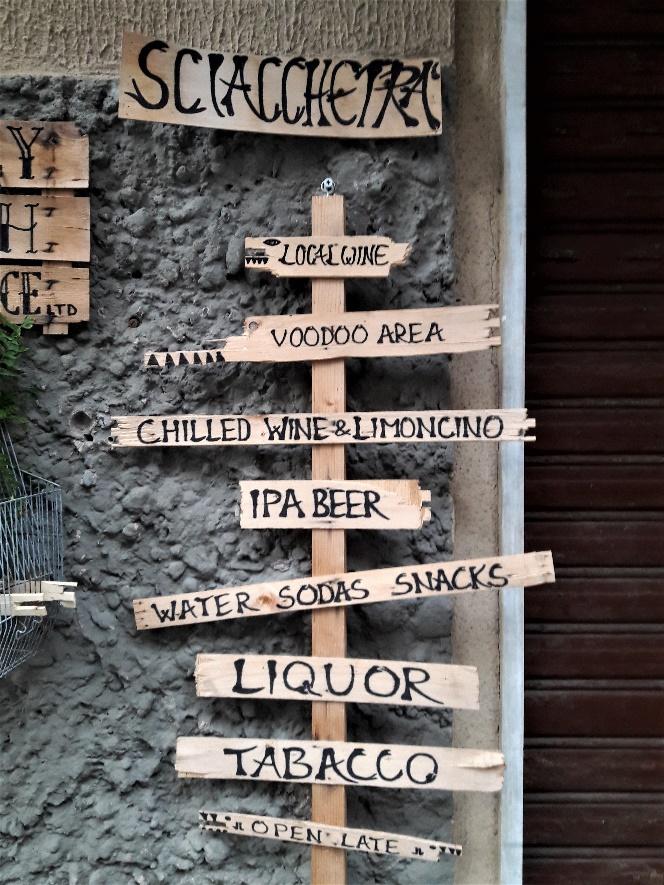 SCIACCHETRÁ
Y
H
CE LTD
LOCAL WINE
VOODOO AREA
CHILLED WINE & LIMONCINO
IPA BEER
WATER SODAS SNACKS
LIQUOR
TABACCO
OPEN LATE